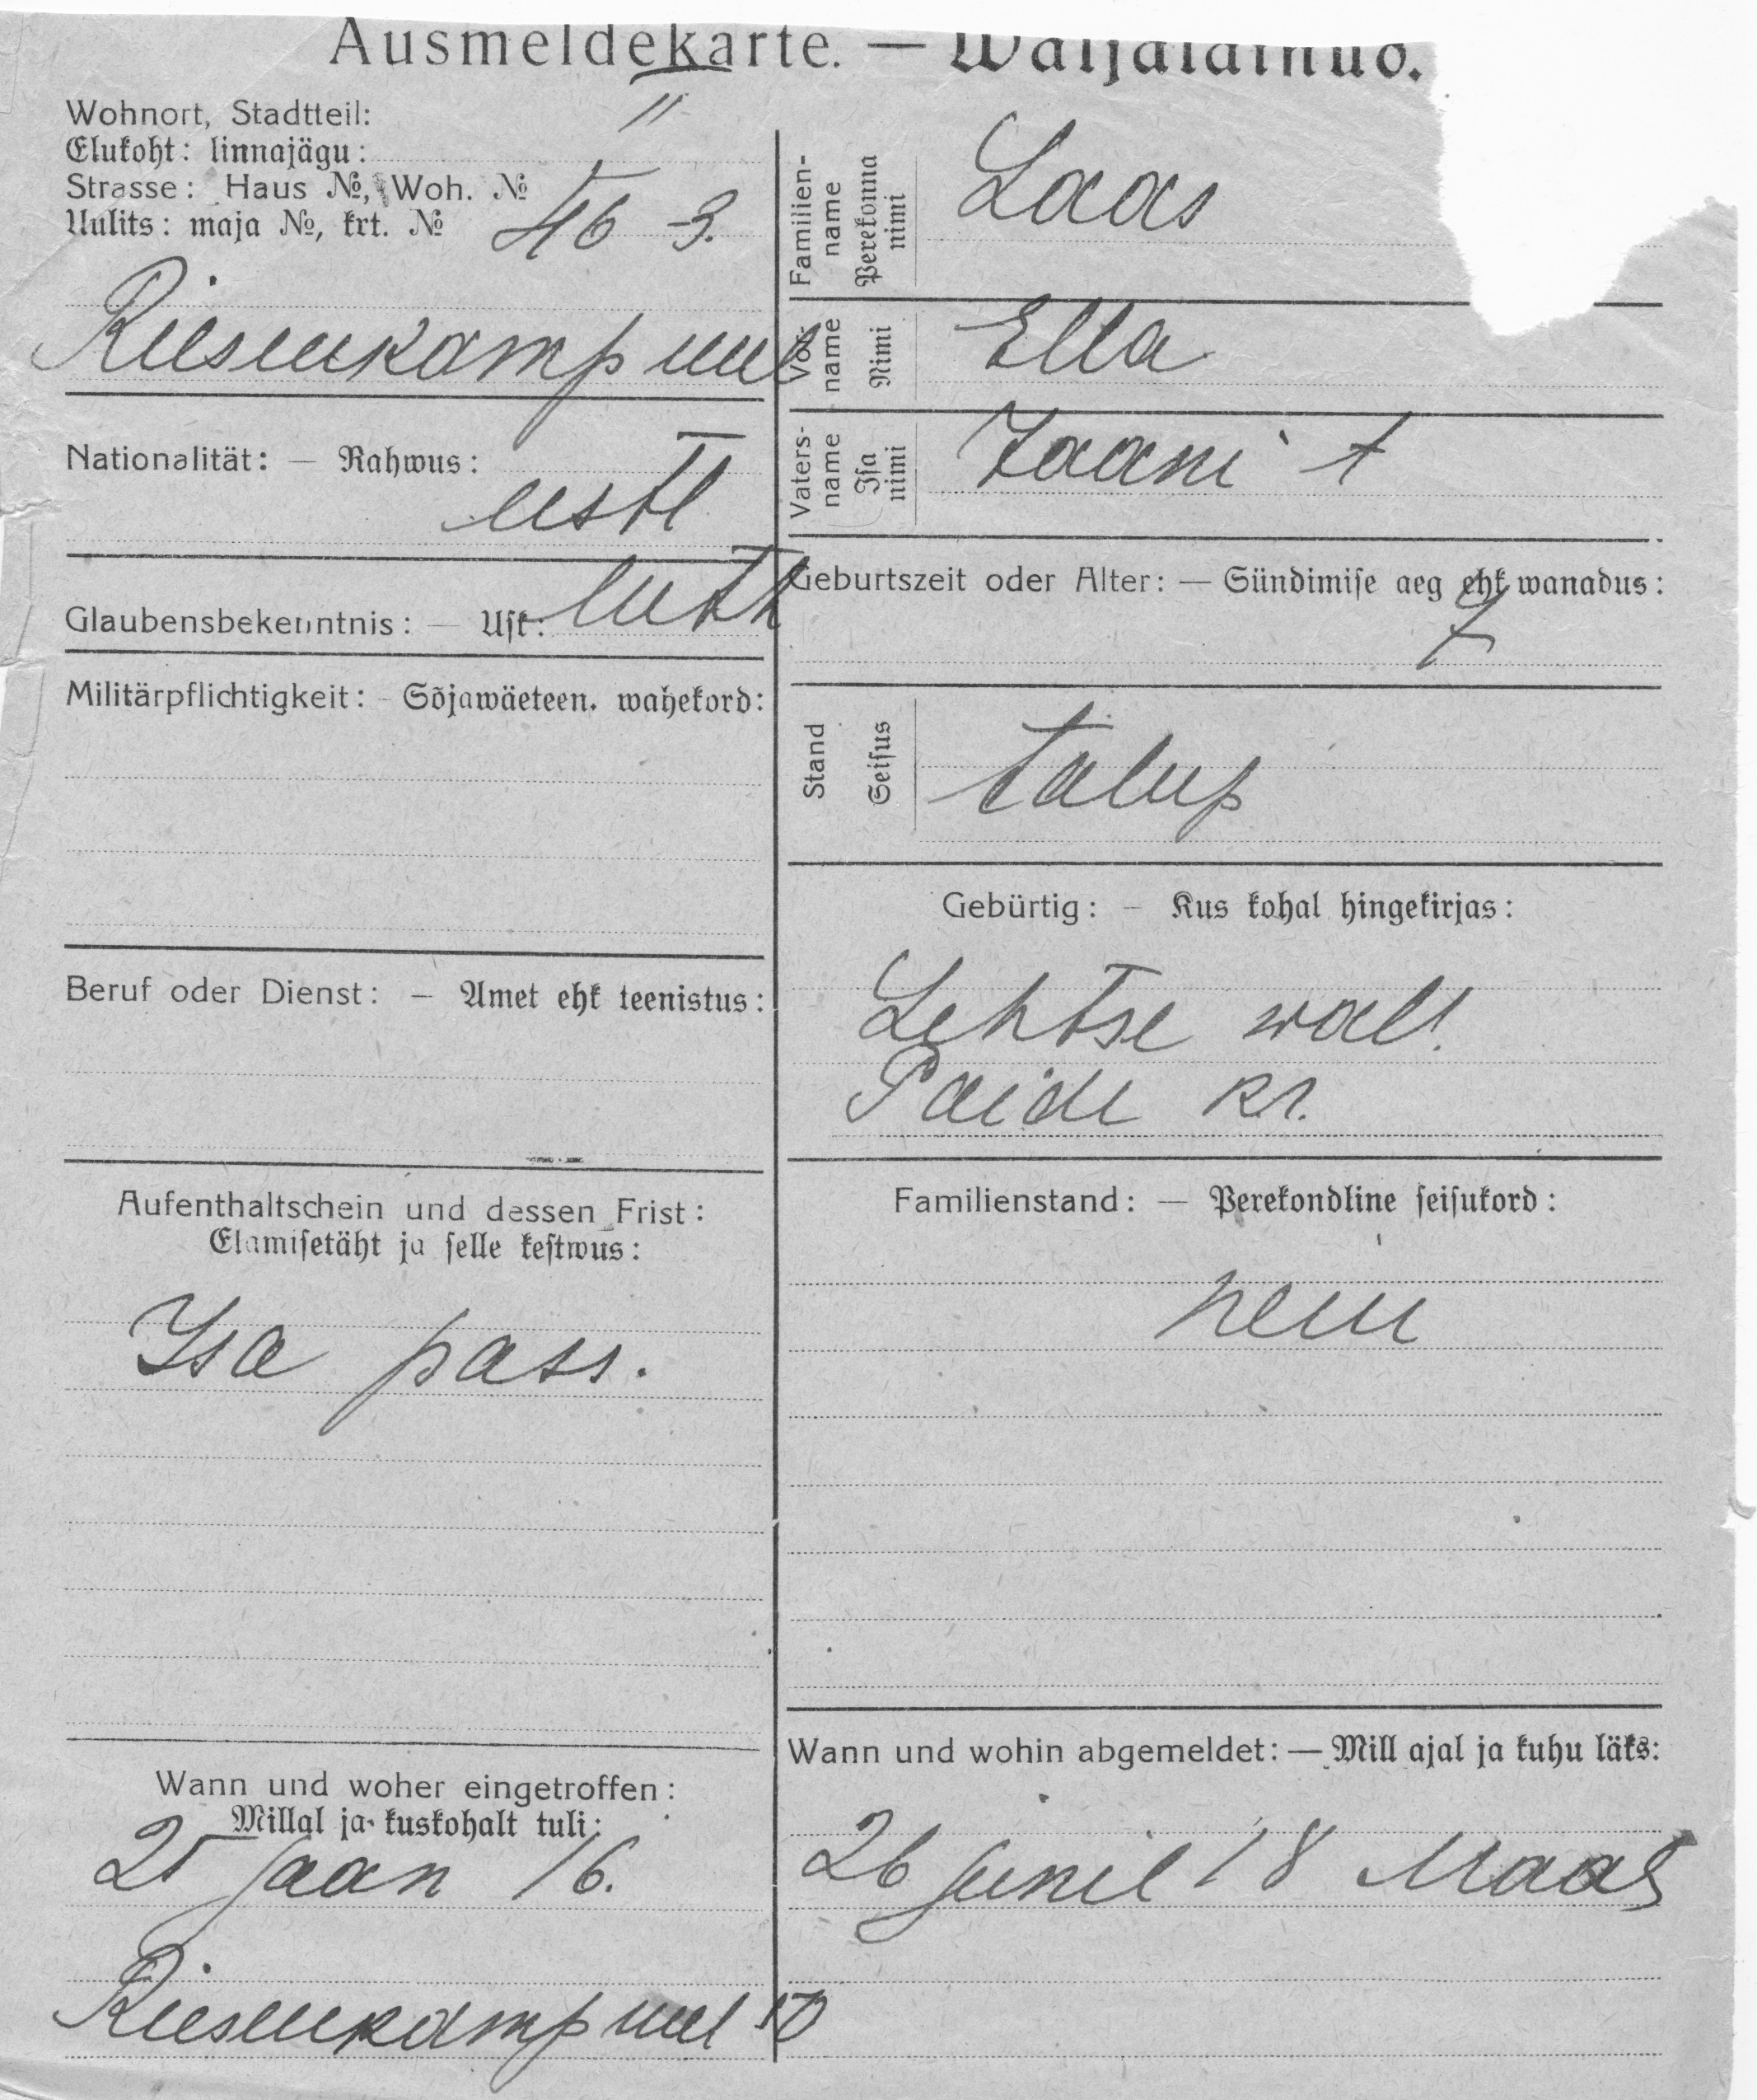 Ausmeldekarte. —
II
Wohnort, Stadtteil:
Elukoht: linnajägu:
Strasse: Haus №, Woh. №
Uulits: maja №, krt. № 46 3.
Riesenkamp uul
Nationalität: — Rahwus:
eestl
Glaubensbekenntnis: — Usk: luth
Militärpflichtigkeit: - Sõjawäeteen. wahekord:
Beruf oder Dienst: — Amet ehk teenistus:
Aufenthaltschein und dessen Frist:
Elamisetäht ja selle kestwus:
Isa pass.
Wann und woher eingetroffen:
Millal ja kuskohalt tuli:
25 jaan 16.
Riesenkamp uul 10
Familien-name Perekonna nimi Laas
Vor-name Nimi Ella
Vaters-name Isa nimi Jaani t
Geburtszeit oder Alter: — Sündimise aeg ehk wanadus:
7
Stand Seisus talup
Gebürtig: — Kus kohal hingekirjas:
Lehtse wall.
Paide kr.
Familienstand: — Perekondline seisukord:
neiu
Wann und wohin abgemeldet: — Mill ajal ja kuhu läks:
26 junil 18 Maal